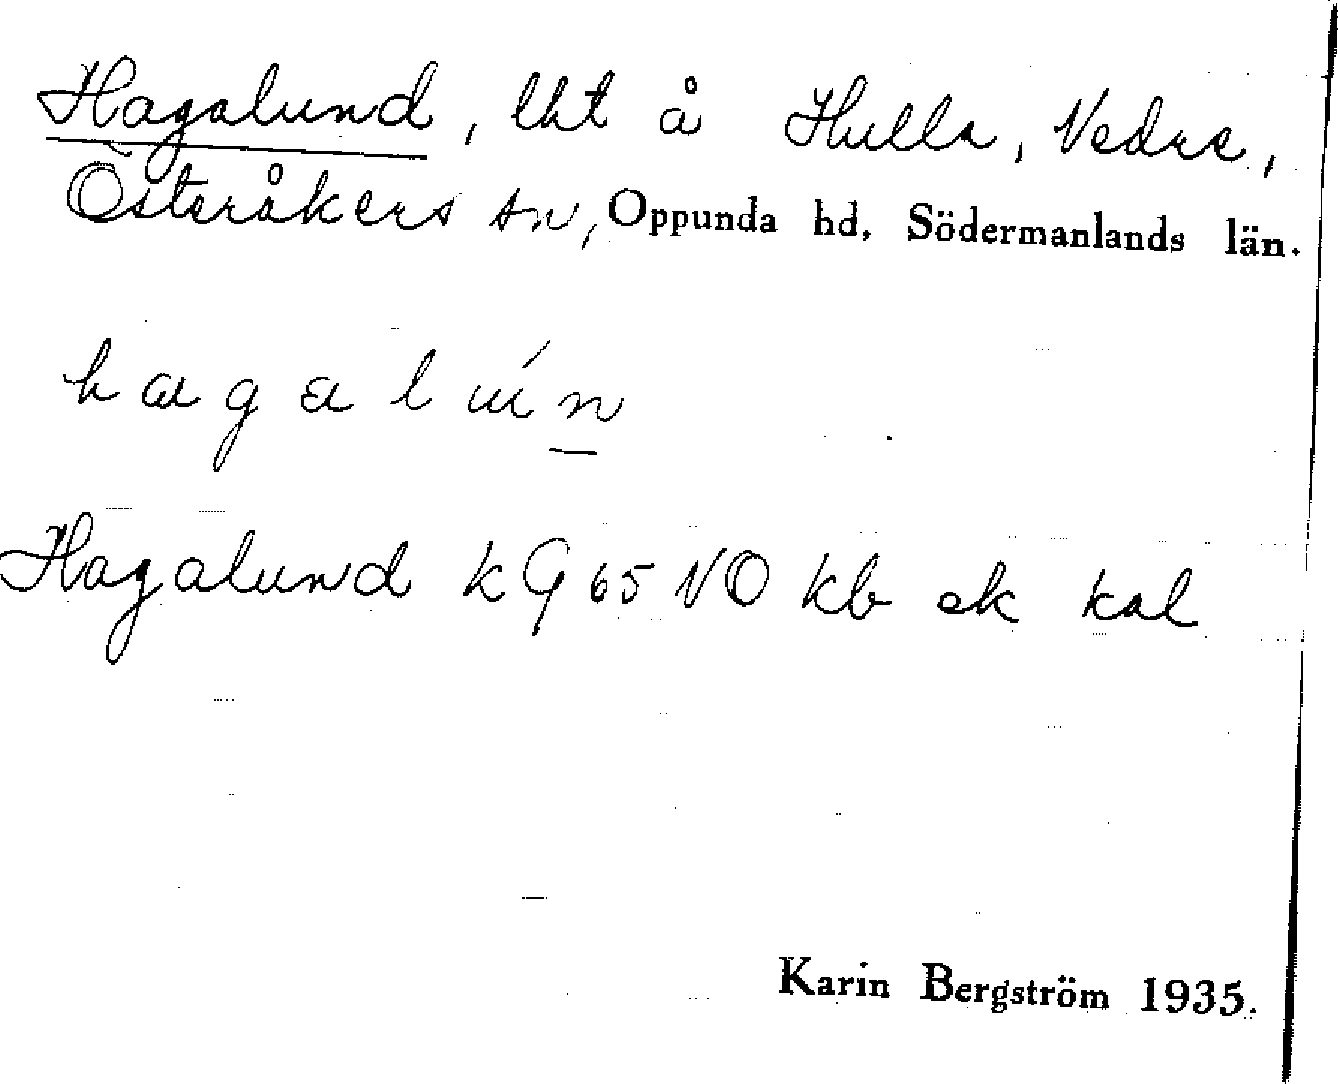 Hagalund, lht å Hulla, Vedre,
Österåkers sn, Oppunda hd, Södermanlands län.
h a g a l ú n
Hagalund k G 65 NO kb ek kal
Karin Bergström 1935.